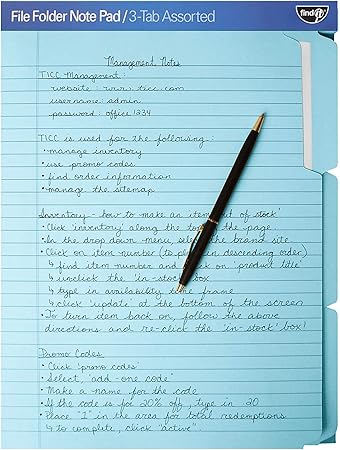 File Folder Note Pad / 3-Tab Assorted
find it
Management Notes
TICC Management:
website: www.ticc.com
username: admin
password: office1234
TICC is used for the following:
• manage inventory
• use promo codes
• find order information
• manage the sitemap
Inventory - how to make an item out of stock
• Click 'inventory' along the top of the page
• In the drop down menu, select the brand site
• Click on item number (to place in descending order)
↳ find item number and click on 'product title'
↳ unclick the 'in-stock' box
↳ type in availability time frame
↳ click 'update' at the bottom of the screen
• To turn item back on, follow the above
directions and re-click the 'in-stock' box!
Promo Codes
• Click 'promo codes'
• Select, "add-one code"
• Make a name for the code
• If the code is for 20% off, type in 20
• Place "1" in the area for total redemptions
↳ to complete, click "active".